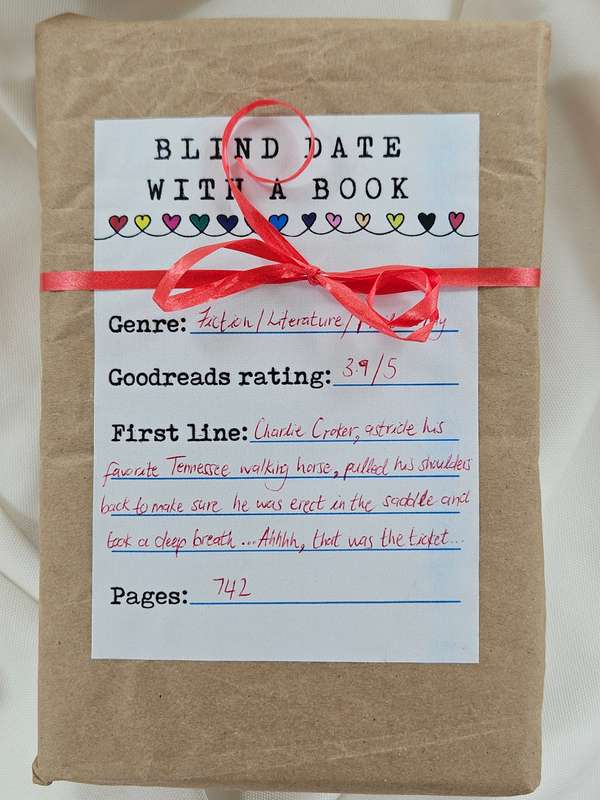 BLIND DATE
WITH A BOOK
Genre: Fiction/Literature/
Goodreads rating: 3.9/5
First line: Charlie Croker, astride his
favorite Tennessee walking horse, pulled his shoulders
back to make sure he was erect in the saddle and
took a deep breath ... Ahhhh, that was the ticket...
Pages: 742